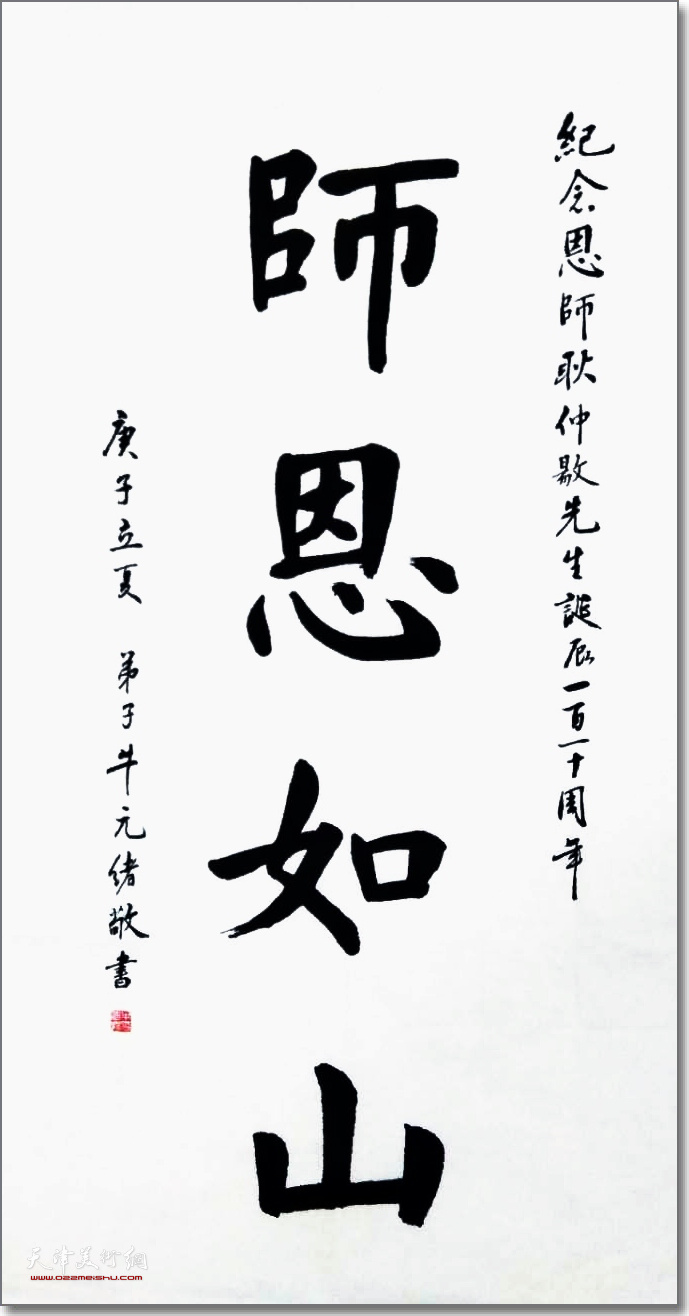 紀念恩師耿仲敭先生誕辰一百一十周年
師恩如山
庚子立夏 弟子牛元緒敬書
天津美術網
www.022meishu.com